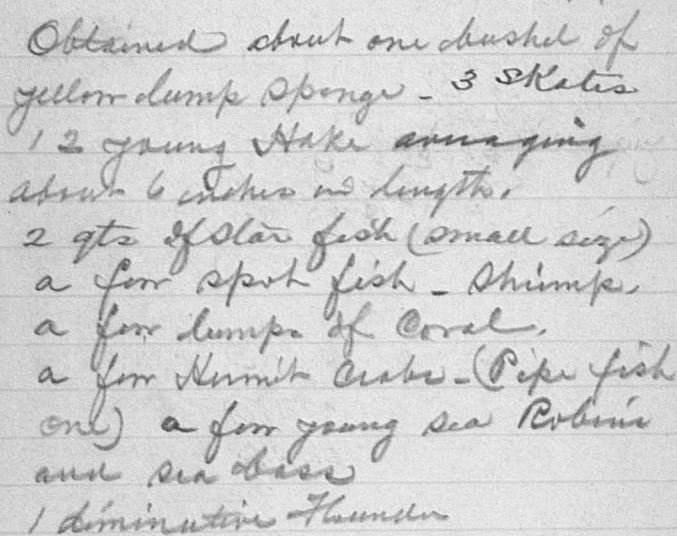 Obtained about one bushel of
yellow lump sponge - 3 Skates
12 young Hake averaging
about 6 inches in length.
2 qts of Star fish (small size)
a few spot fish - Shrimp.
a few lumps of Coral.
a few Hermit Crabs - (Pipe fish
one) a few young sea Robins
and sea bass
1 diminutive Flounder